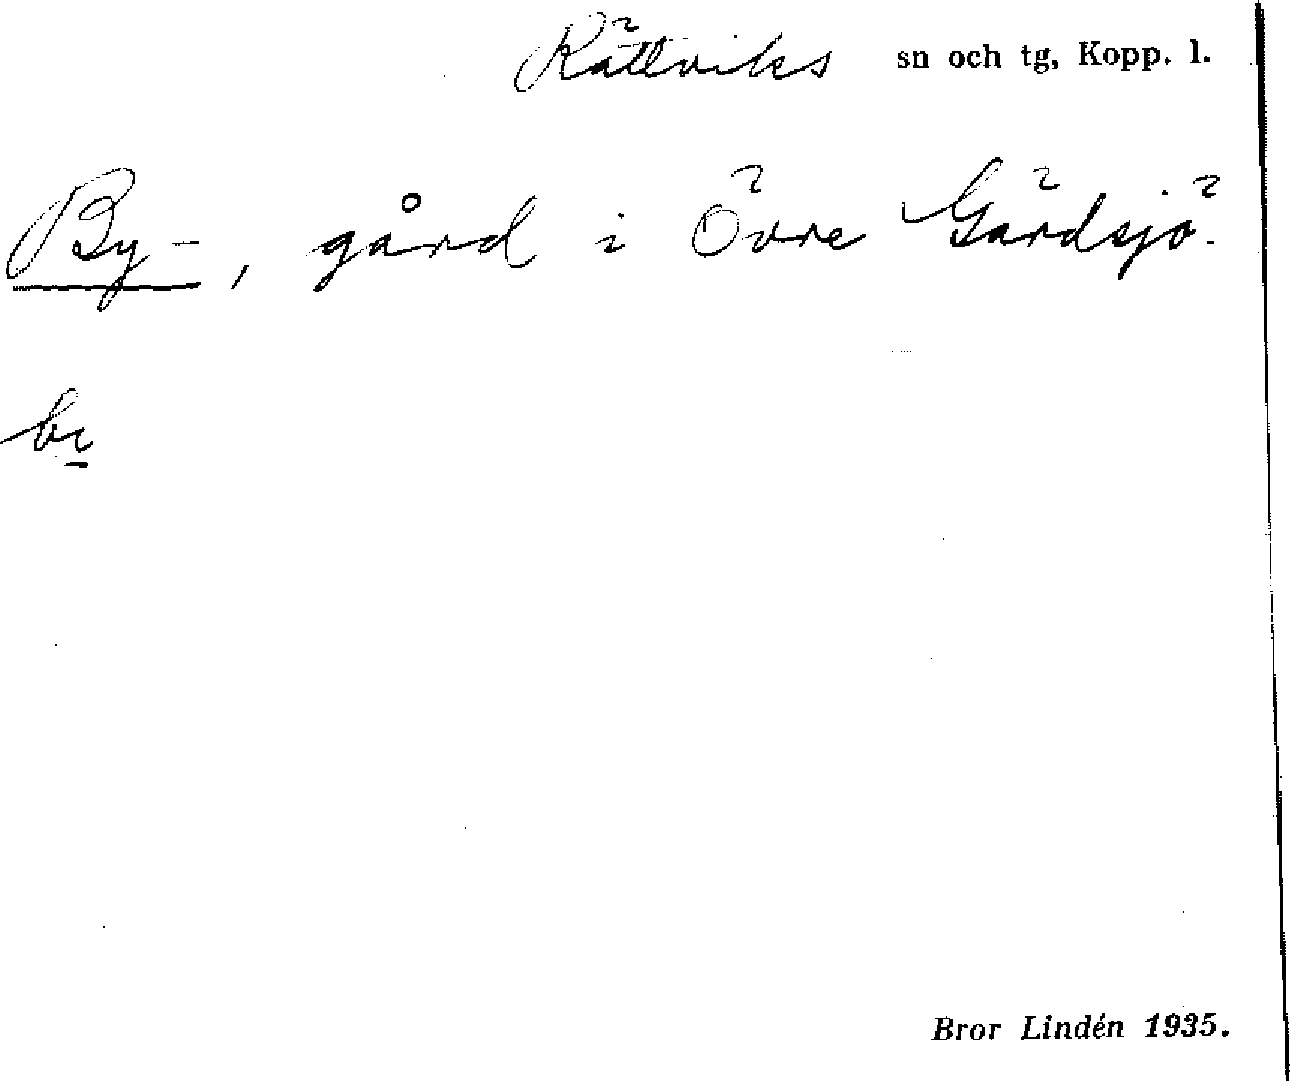 Rättviks sn och tg, Kopp. l.
By-, gård i Övre Gärdsjö.
bi
Bror Lindén 1935.